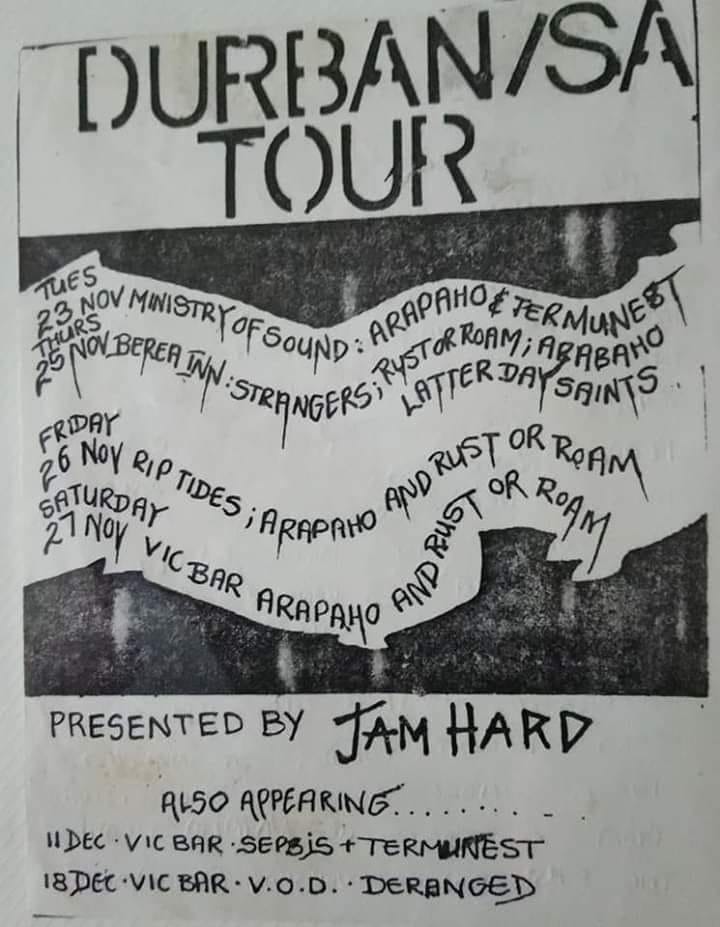 DURBAN/SA
TOUR
TUES
23 NOV MINISTRY OF SOUND: ARAPAHO & TERMUNEST
THURS
25 NOV BEREA INN: STRANGERS; RUST OR ROAM; ARABAHO
LATTER DAY SAINTS
FRIDAY
26 NOV RIP TIDES; ARAPAHO AND RUST OR ROAM
SATURDAY
27 NOV VIC BAR ARAPAHO AND RUST OR ROAM
PRESENTED BY JAM HARD
ALSO APPEARING..........
11 DEC · VIC BAR · SEPSIS + TERMUNEST
18 DEC · VIC BAR · V.O.D. · DERANGED